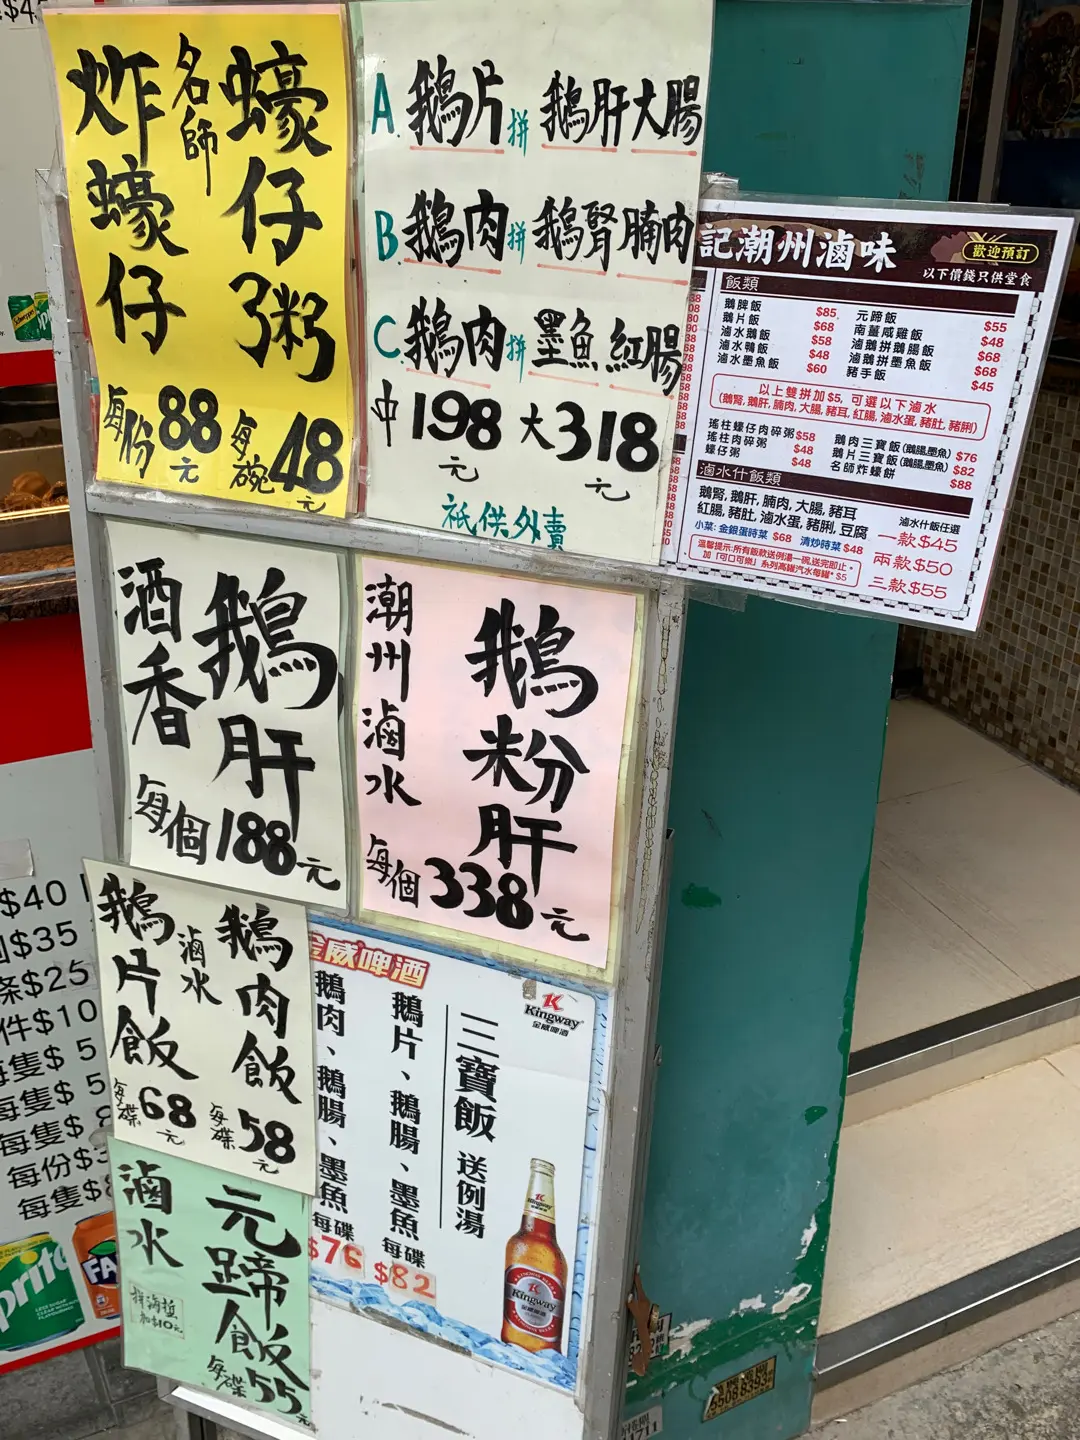 名師
蠔仔粥
每碗48元
炸蠔仔
每份88元
A. 鵝片拼鵝肝大腸
B. 鵝肉拼鵝腎腩肉
C. 鵝肉拼墨魚紅腸
中198元 大318元
祇供外賣
記潮州滷味
歡迎預訂
以下價錢只供堂食
飯類
鵝脾飯 $85
鵝片飯 $68
滷水鵝飯 $58
滷水鴨飯 $48
滷水墨魚飯 $60
元蹄飯 $55
南薑咸雞飯 $48
滷鵝拼鵝腸飯 $68
滷鵝拼墨魚飯 $68
豬手飯 $45
以上雙拼加$5, 可選以下滷水
(鵝腎, 鵝肝, 腩肉, 大腸, 豬耳, 紅腸, 滷水蛋, 豬肚, 豬脷)
瑤柱蠔仔肉碎粥 $58
瑤柱肉碎粥 $48
蠔仔粥 $48
鵝肉三寶飯(鵝腸,墨魚) $76
鵝片三寶飯(鵝腸,墨魚) $82
名師炸蠔餅 $88
滷水什飯類
鵝腎, 鵝肝, 腩肉, 大腸, 豬耳
紅腸, 豬肚, 滷水蛋, 豬脷, 豆腐
滷水什飯任選
一款$45
兩款$50
三款$55
小菜: 金銀蛋時菜 $68 清炒時菜 $48
溫馨提示:所有飯款送例湯一碗,送完即止。
加「可口可樂」系列高罐汽水每罐* $5
酒香
鵝肝
每個188元
潮州滷水
鵝粉肝
每個338元
滷水
鵝肉飯
每碟58元
鵝片飯
每碟68元
金威啤酒
Kingway
金威啤酒
三寶飯 送例湯
鵝片、鵝腸、墨魚
每碟
$82
鵝肉、鵝腸、墨魚
每碟
$76
Kingway
滷水
元蹄飯
每碟55元
$40
$35
條$25
件$10
每隻$5
每隻$
每份$3
每隻$
Sprite